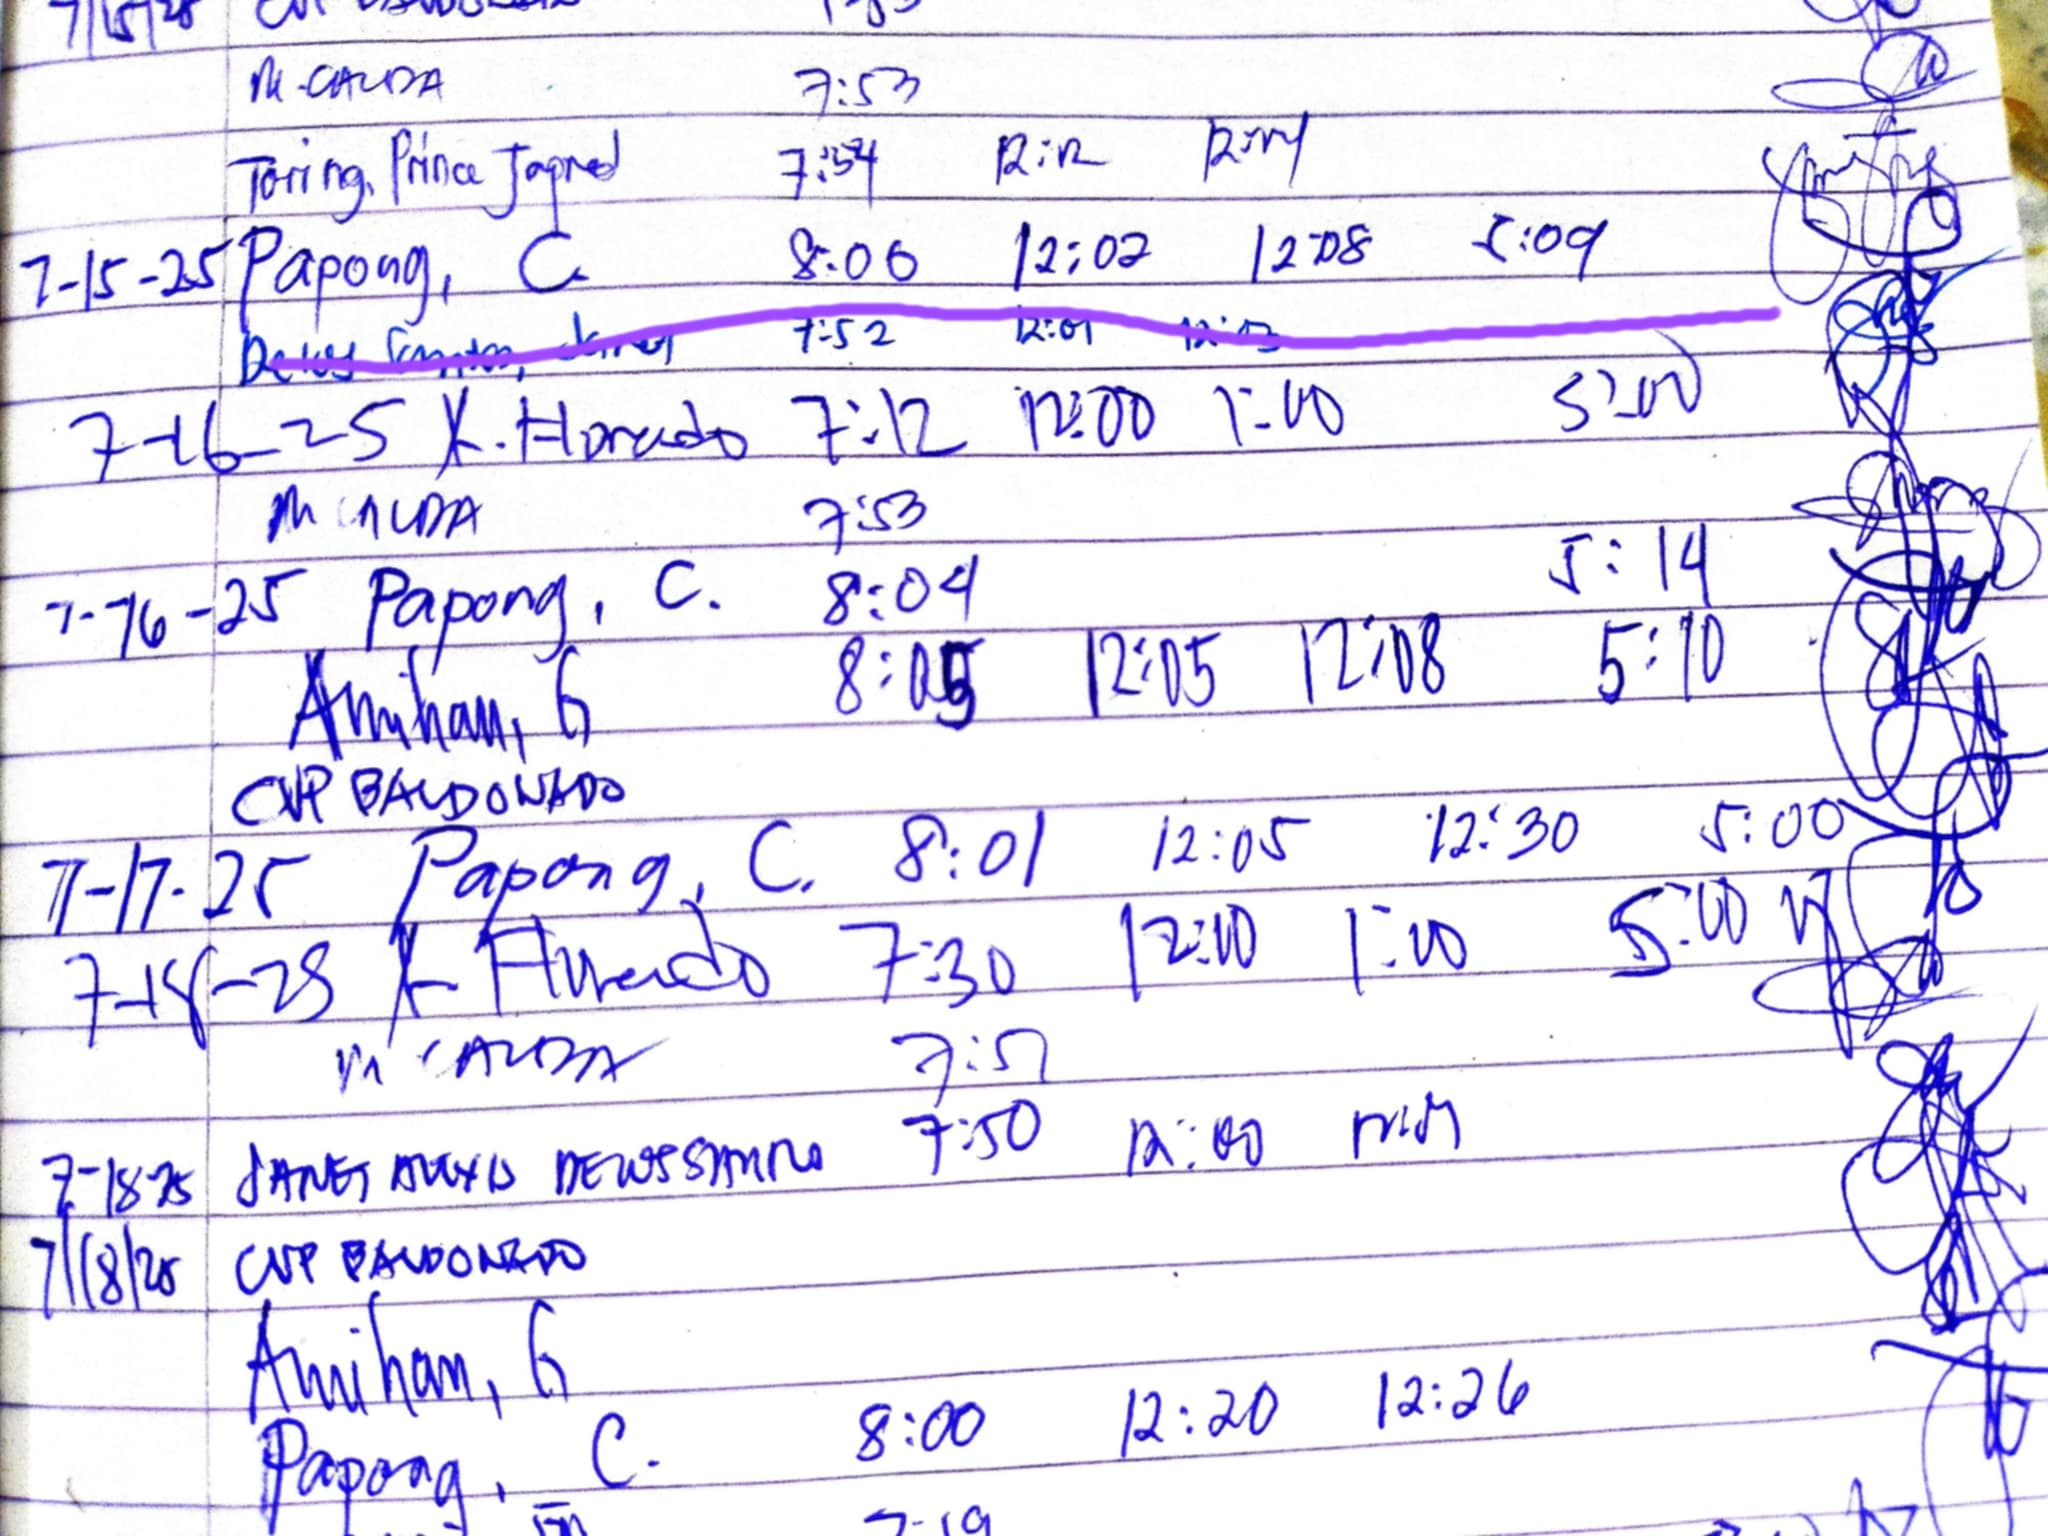 7/15/25 CVP BALDONADO 7:53
M. CALDA 7:53
Toring, Prince Japred 7:54 12:12 12:14
7-15-25 Papong, C. 8:00 12:02 12:08 5:09
7:52 12:01 12:13
7-16-25 K. Hurado 7:12 12:00 1:00 5:00
M CALDA 7:53
7-16-25 Papong, C. 8:04 5:14
Amihan, G 8:05 12:05 12:08 5:10
CVP BALDONADO
7-17-25 Papong, C. 8:01 12:05 12:30 5:00
7-18-25 K Hurado 7:30 12:00 1:00 5:00
M CALDA 7:51
7-18-25 JANET ALEXIS DELOS SANTOS 7:50 12:00
7/18/25 CVP BALDONADO
Amihan, G
Papong, C. 8:00 12:20 12:26
7:19